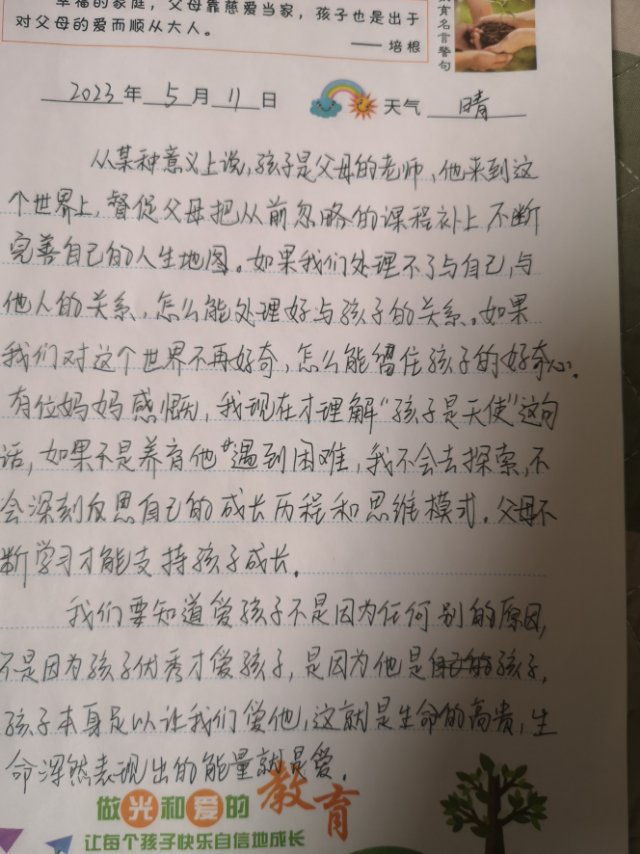 幸福的家庭，父母靠慈爱当家，孩子也是出于
对父母的爱而顺从大人。
—— 培根
育名言警句
2023年 5 月 11 日
天气 晴
从某种意义上说,孩子是父母的老师、他来到这
个世界上,督促父母把从前忽略的课程补上,不断
完善自己的人生地图。如果我们处理不了与自己,与
他人的关系,怎么能处理好与孩子的关系。如果
我们对这个世界不再好奇,怎么能留住孩子的好奇心。
有位妈妈感慨,我现在才理解“孩子是天使”这句
话,如果不是养育他“遇到困难,我不会去探索,不
会深刻反思自己的成长历程和思维模式。父母不
断学习才能支持孩子成长。
我们要知道爱孩子不是因为任何别的原因,
不是因为孩子优秀才爱孩子,是因为他是孩子,
孩子本身足以让我们爱他,这就是生命的高贵,生
命浑然表现出的能量就是爱。
做光和爱的教育
让每个孩子快乐自信地成长